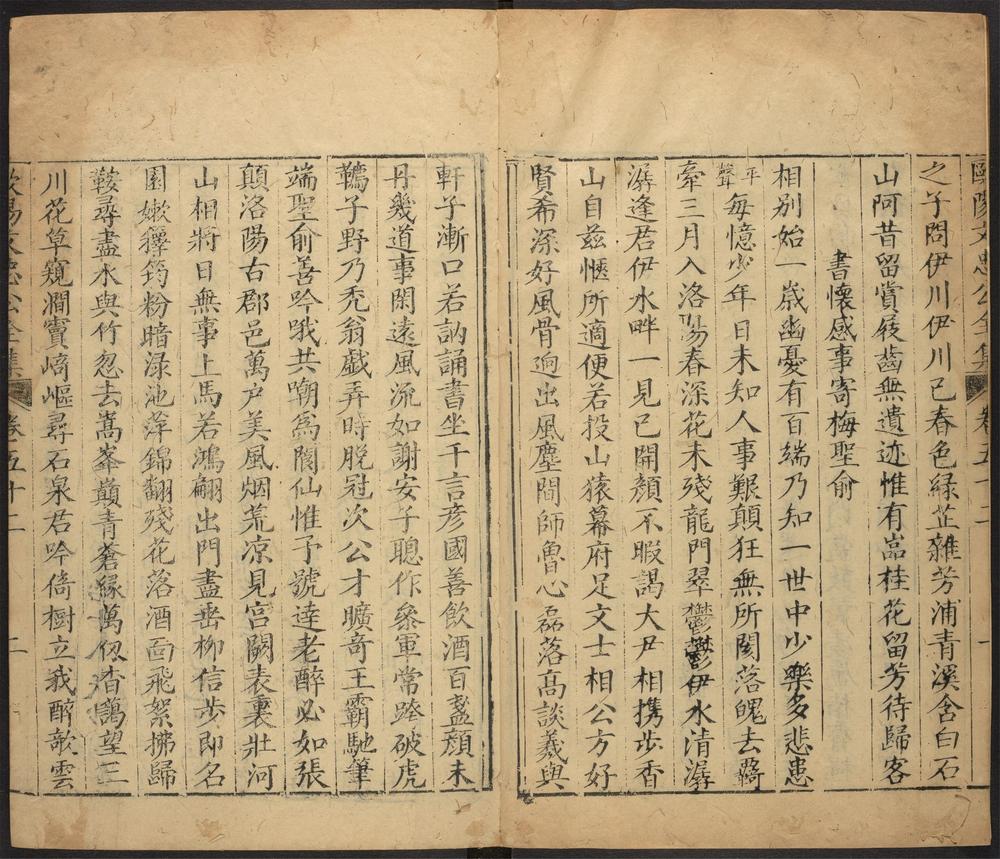 歐陽文忠公全集 卷五十二 一
之子問伊川伊川已春色緑芷雜芳浦青溪含白石
山阿昔留賞屐齒無遺迹惟有嵓桂花留芳待歸客
書懷感事寄梅聖俞
相別始一歲幽憂有百端乃知一世中少樂多悲患
平聲每憶少年日未知人事艱顛狂無所閡落魄去羇
牽三月入洛陽春深花未殘龍門翠鬱鬱伊水清潺
潺逢君伊水畔一見已開顏不暇謁大尹相携步香
山自茲愜所適便若投山猿幕府足文士相公方好
賢希深好風骨迥出風塵間師魯心磊落高談羲與
軒子漸口若訥誦書坐千言彦國善飲酒百盞顏未
丹幾道事閑遠風流如謝安子聰作叅軍常跨破虎
韉子野乃禿翁戲弄時脫冠次公才曠竒王霸馳筆
端聖俞善吟哦共嘲爲閬仙惟予號達老醉必如張
顛洛陽古郡邑萬户美風烟荒凉見宫闕表裏壯河
山相將日無事上馬若鴻翩出門盡垂柳信步即名
園嫩籜筠粉暗渌池萍錦翻殘花落酒面飛絮拂歸
鞍尋盡水與竹忽去嵩峯巔青蒼縁萬仭杳靄望三
川花草窺澗竇﨑嶇尋石泉君吟倚樹立我醉欹雲
歐陽文忠公全集 卷五十二 二